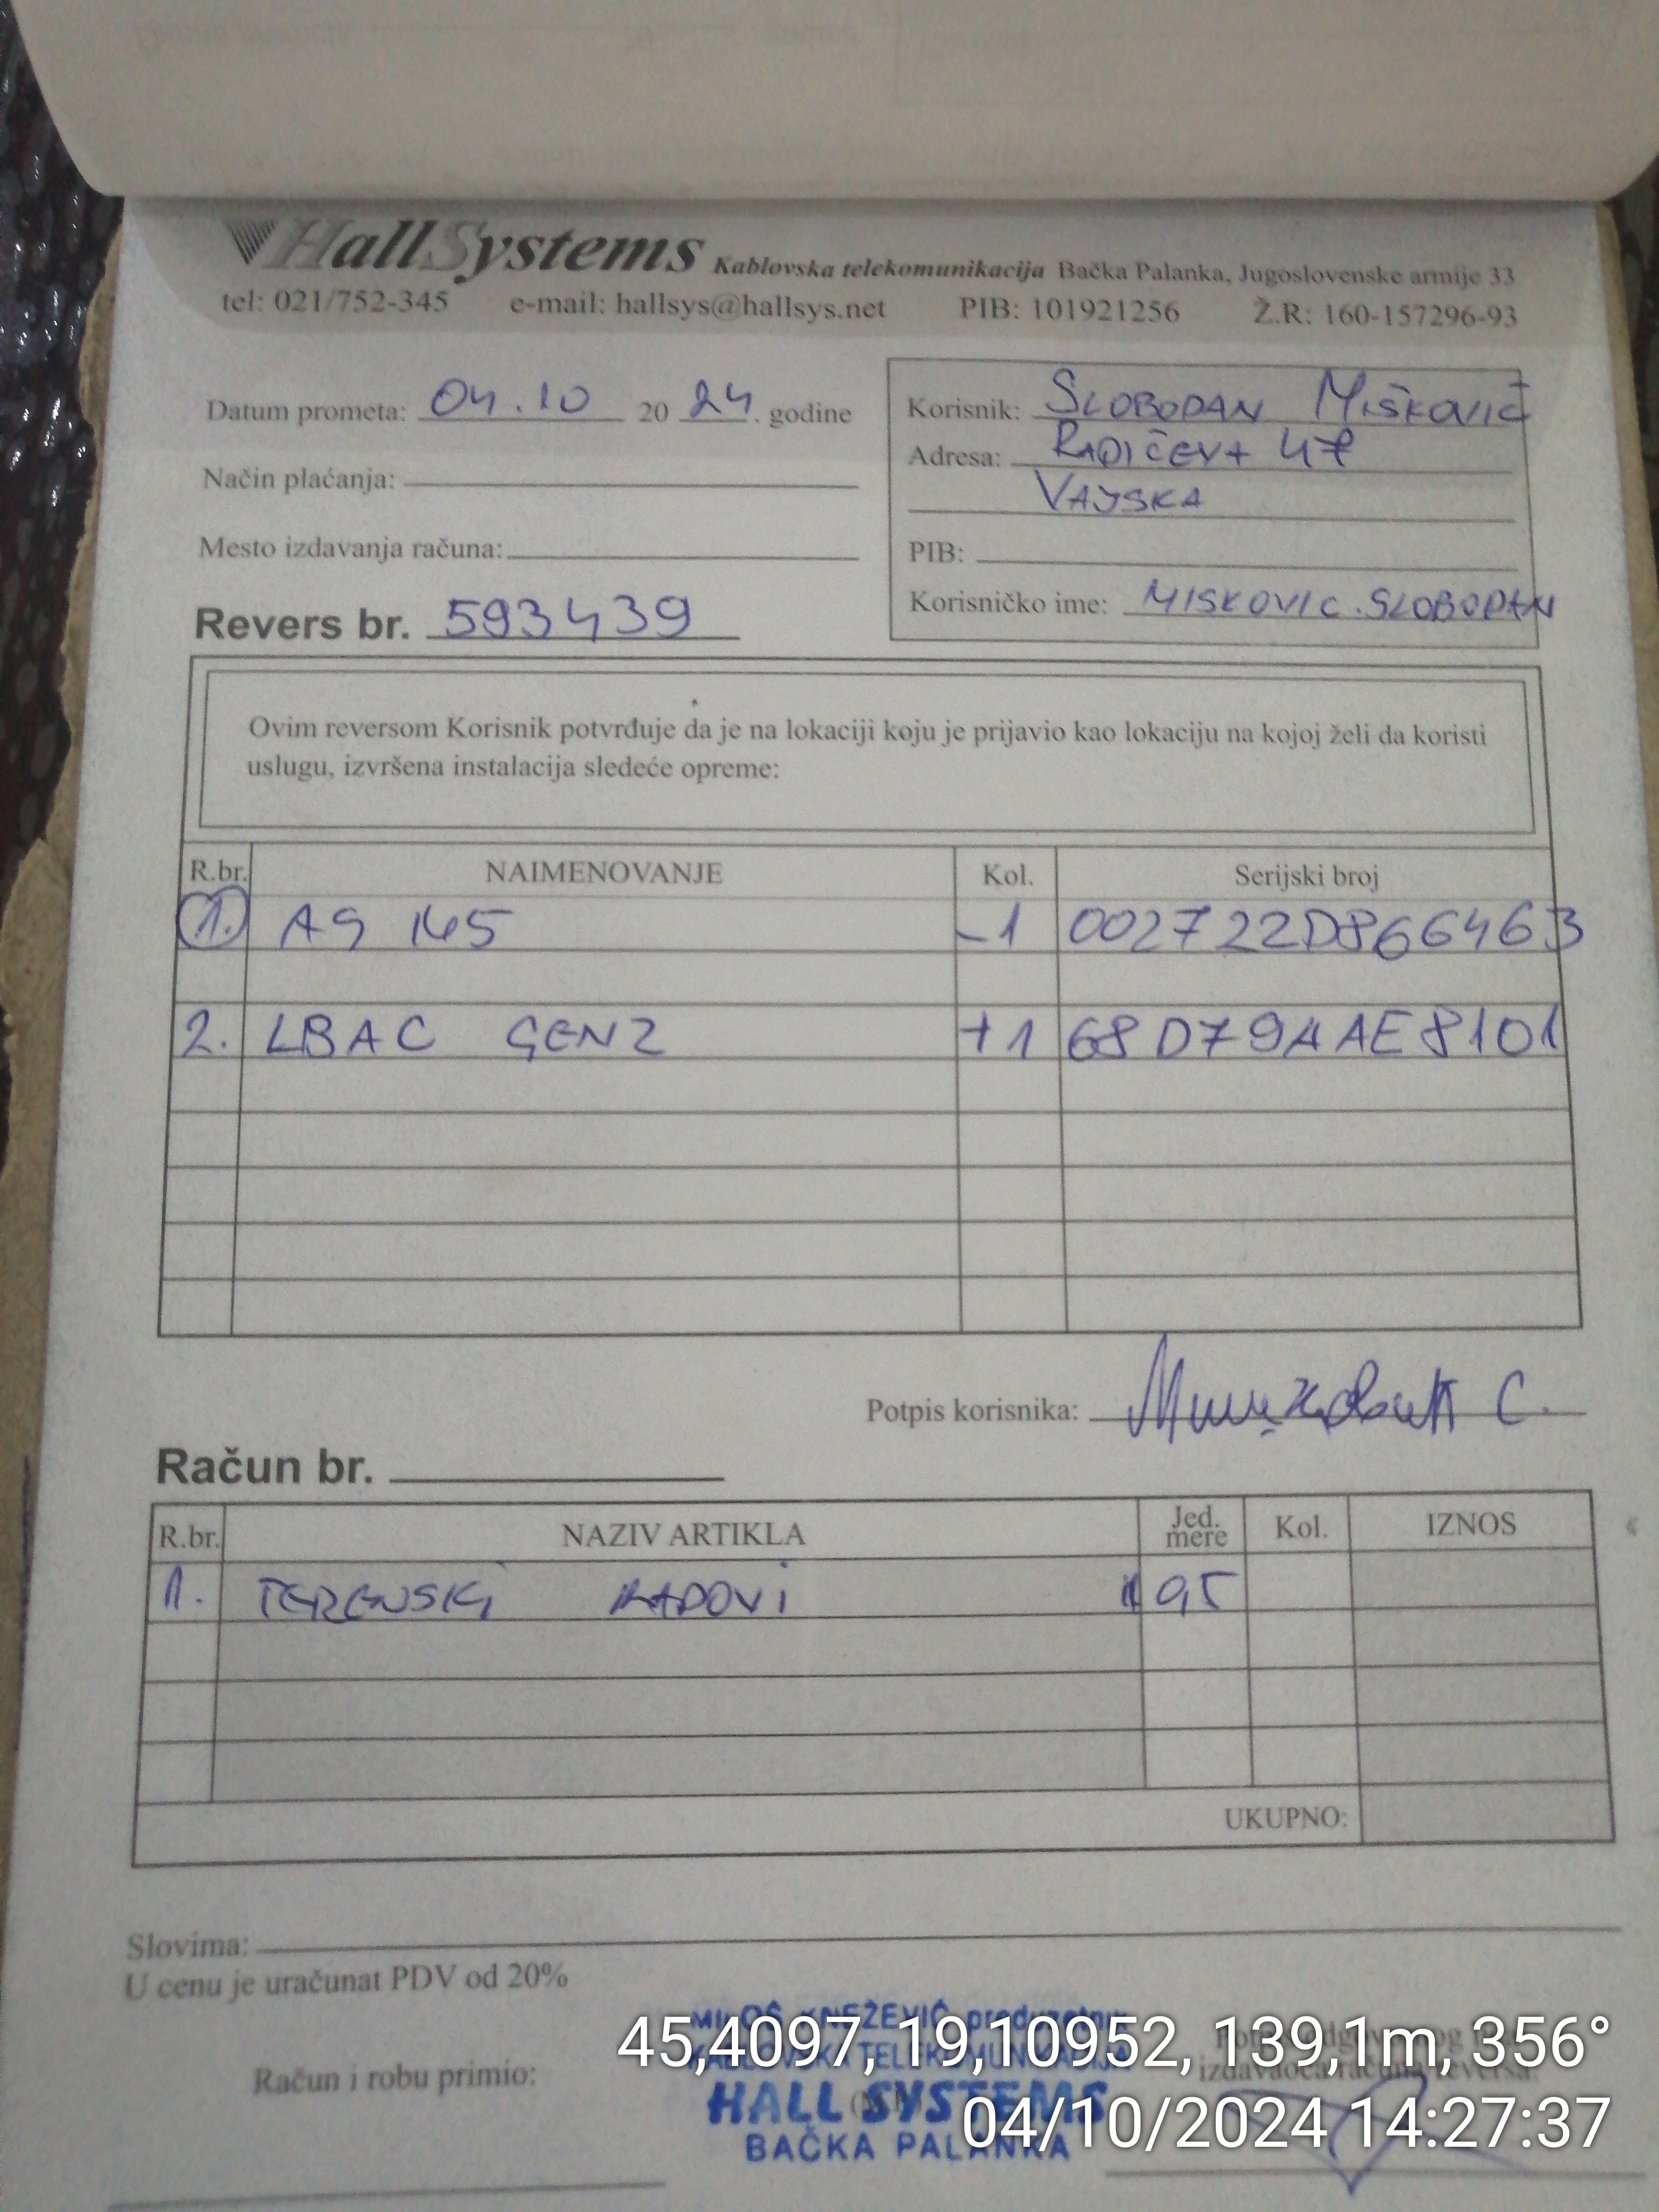 HallSystems Kablovska telekomunikacija Bačka Palanka, Jugoslovenske armije 33
tel: 021/752-345 e-mail: hallsys@hallsys.net PIB: 101921256 Ž.R: 160-157296-93
Datum prometa: 04.10 2024. godine
Način plaćanja:
Mesto izdavanja računa:
Revers br. 593439
Korisnik: SLOBODAN MIŠKOVIĆ
Adresa: RADIČEVA 47
VAJSKA
PIB:
Korisničko ime: MISKOVIC.SLOBODAN
Ovim reversom Korisnik potvrđuje da je na lokaciji koju je prijavio kao lokaciju na kojoj želi da koristi
uslugu, izvršena instalacija sledeće opreme:
R.br. NAIMENOVANJE Kol. Serijski broj
1. AG 145 -1 002722D866463
2. LBAC GEN2 +1 68D79AAE8101
Potpis korisnika: С.
Račun br.
R.br. NAZIV ARTIKLA Jed. mere Kol. IZNOS
1. TERENSKI RADOVI 95
UKUPNO:
Slovima:
U cenu je uračunat PDV od 20%
Račun i robu primio:
MILOŠ KNEŽEVIĆ preduzetnik
KABLOVSKA TELEKOMUNIKACIJA
HALL SYSTEMS
BAČKA PALANKA
izdavaoca računa/reversa:
45,4097, 19,10952, 139,1m, 356°
04/10/2024 14:27:37